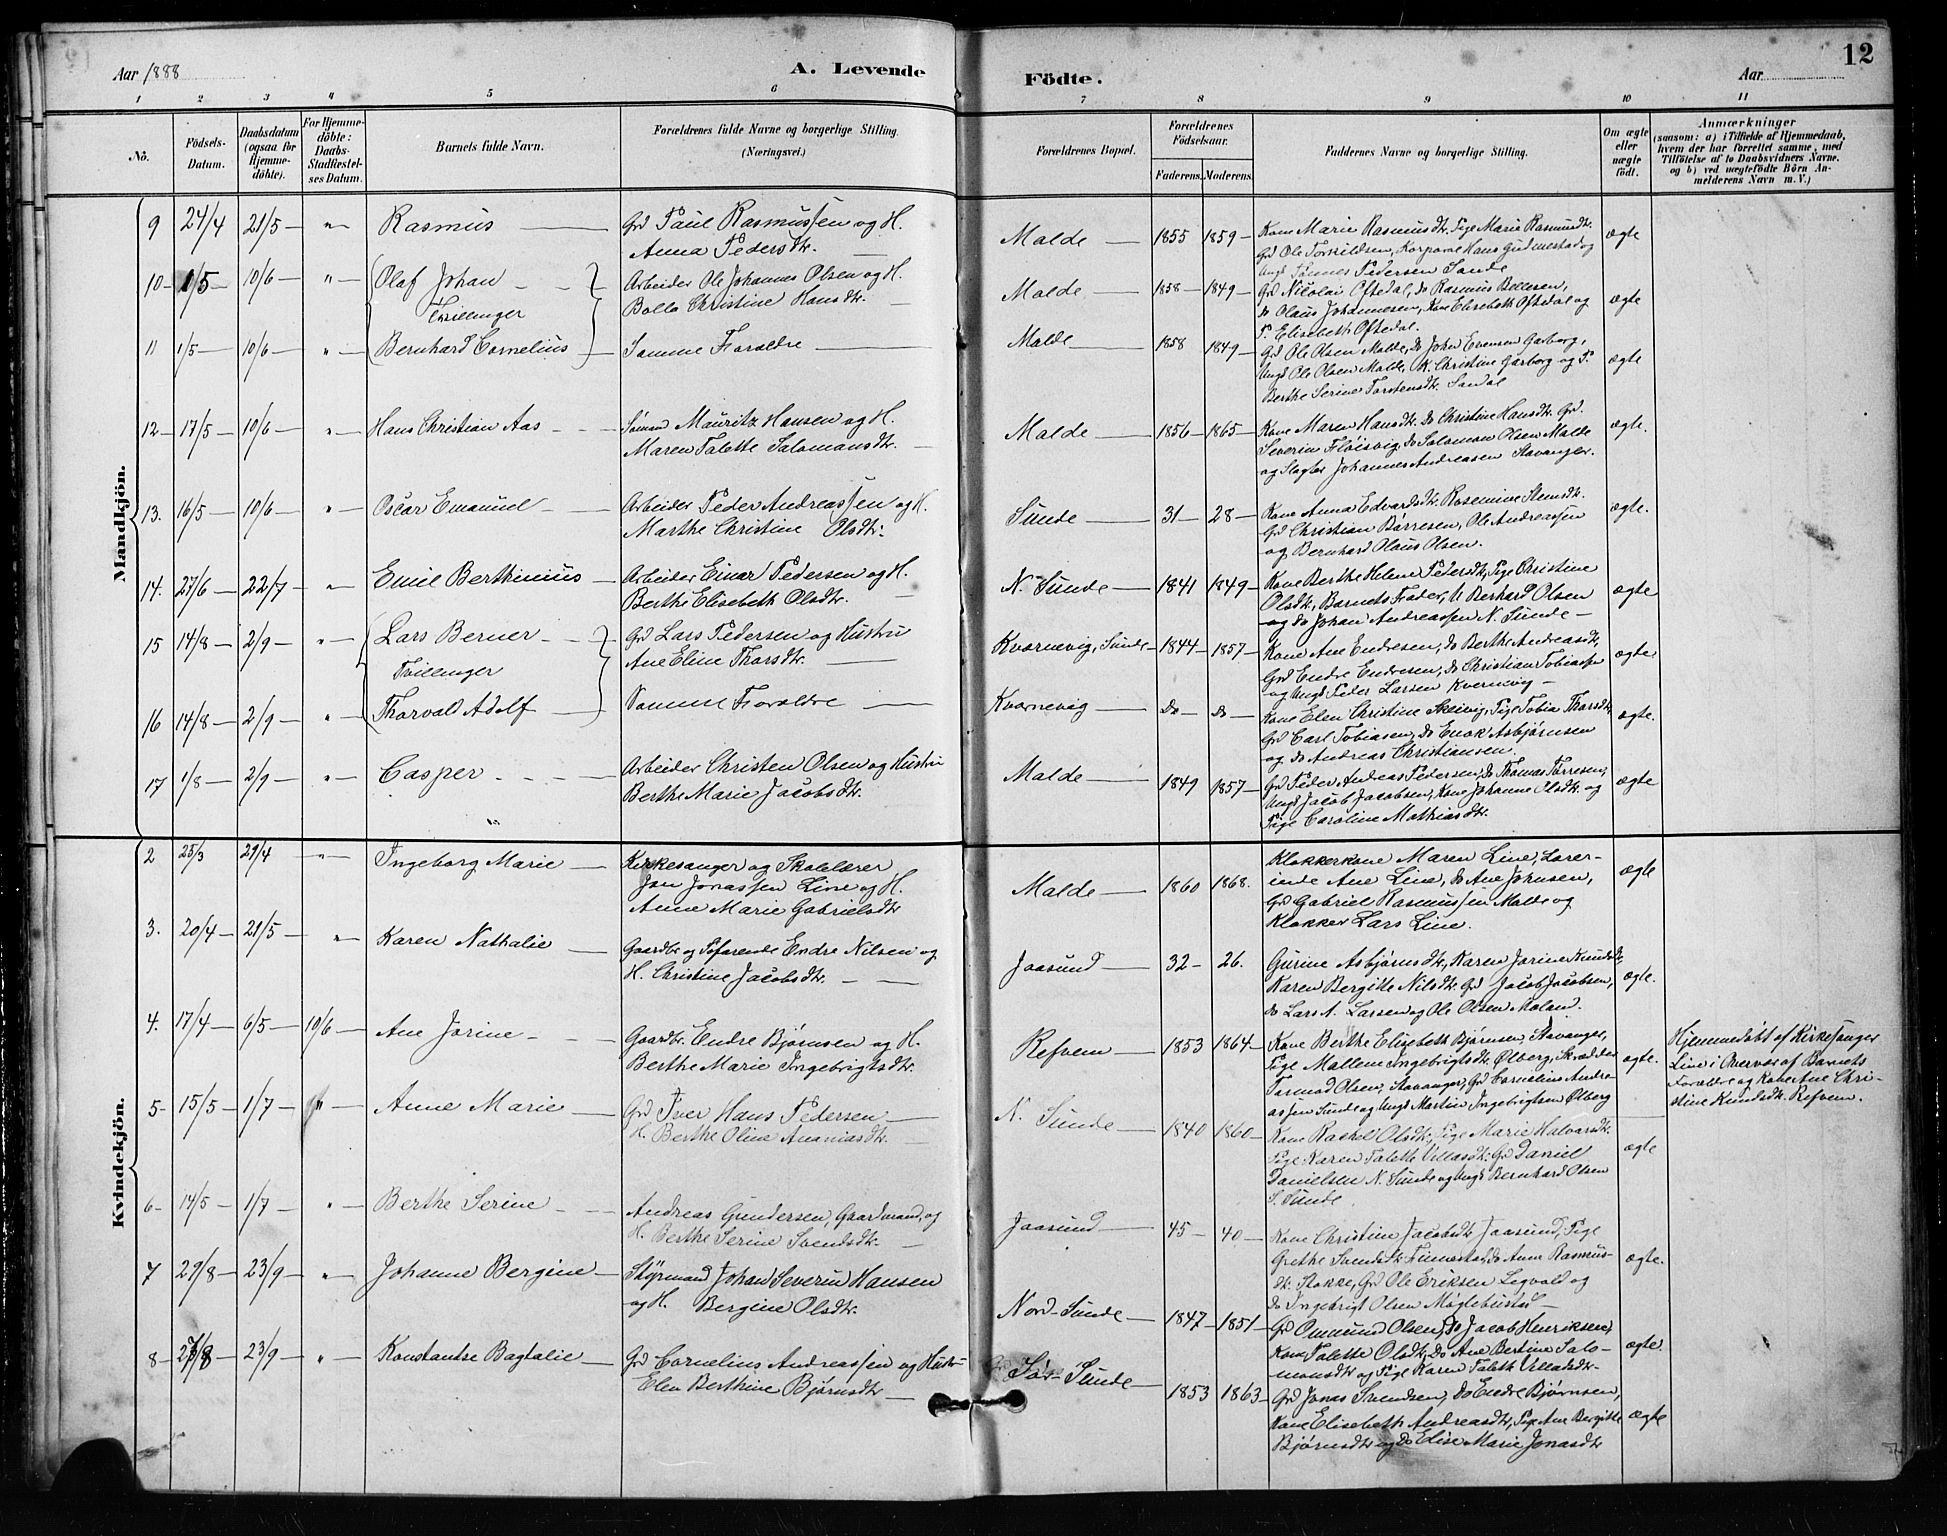 Aar 1888
A. Levende
Födte.
Aar
12
1 2 3 4 5 6 7 8 9 10 11
No.
Födsels-Datum.
Daabsdatum (ogsaa for Hjemmedöbte).
For Hjemmedöbte: Daabs-Stadfestelses Datum.
Barnets fulde Navn.
Forældrenes fulde Navne og borgerlige Stilling. (Næringsvei.)
Forældrenes Bopæl.
Forældrenes Födselsaar.
Faderens. Moderens.
Faddernes Navne og borgerlige Stilling.
Om ægte eller uægte födt.
Anmærkninger
(saasom: a) i Tilfælde af Hjemmedaab, hvem der har forrettet samme, med Tilföielse af to Daabsvidners Navne. og b) ved uægtefödte Börn Anmelderens Navn m. V.)
Mandkjön.
9 24/4 21/5 — " — Rasmus — Grd Paul Rasmussen og H.
Anna Pedersdtr. — Malde — 1855 1859 — Kone Marie Rasmusdtr. Pige Marie Rasmusdtr.
Grd Ole Torkildsen, Korporal Hans Gudmestad og
Ungk Tønnes Pedersen Sande ægte
10 — 1/5 — 10/6 — " — Olaf Johan — Arbeider Ole Johannes Olsen og H.
Tvillinger Bolla Christine Hansdtr. — Malde — 1858 — 1849 — Grd Nicolai Oftedal, do Rasmus Bellesen,
do Olaus Johannesen, Kone Elisebeth Oftedal og
P. Elisebeth Oftedal. ægte
11 1/5 — 10/6 — " — Bernhard Cornelius — Samme Forældre — Malde — 1858 1849 — Grd Ole Olsen Malde, do John Evensen Garborg,
Ungk Ole Olsen Malde, K. Christine Garborg og P.
Berthe Serine Torstensdtr. Sandal ægte
12 — 17/5 — 10/6 — " — Hans Christian Aas — Sømand Mauritz Hansen og H.
Maren Talette Salomansdtr. — Malde — 1856 — 1865 — Kone Maren Hansdtr. do Christine Hansdtr. Grd.
Severin Fløisvig, do Salomon Olsen Malde
og Slagter Johannes Andreasen Stavanger. ægte.
13. 16/5 — 10/6 — " — Oscar Emanuel — Arbeider Peder Andreassen og H.
Marthe Christine Olsdtr. Sunde — 31 — 28 — Kone Anna Edvardsdtr. Rosemine Stensdtr.
Grd Christian Børresen, Ole Andreassen
og Bernhard Olaus Olsen. ægte.
14. 27/6 — 22/7 — " — Emil Berthinius — Arbeider Einar Pedersen og H.
Berthe Elisebeth Olsdtr. — N. Sunde — 1841 1849 — Kone Berthe Helene Pedersdtr, Pige Christine
Olsdtr, Barnets Fader, U Berhard Olsen
og do Johan Andreassen N. Sunde — ægte
15 14/8 — 2/9 — " — Lars Berner — Grd Lars Pedersen og Hustru
Tvillinger Ane Eline Thorsdtr. — Kvernevig, Sunde — 1844 — 1857 — Kone Ane Endresen, do Berthe Andreasdtr,
Grd Endre Endresen, do Christian Tobiassen
og Ungk Peder Larsen Kvernevig — ægte
16 14/8 — 2/9 — " — Thorvald Adolf — Samme Forældre — Kvernevig — do — do — Kone Elen Christine Skeivig, Pige Tobia Thorsdtr.
Grd Carl Tobiasen, do Enok Asbjørnsen
og do Andreas Christiansen. ægte.
17 1/8 — 2/9 — " — Casper — Arbeider Christen Olsen og Hustru
Berthe Marie Jacobsdtr. Malde — 1849 1857 — Grd Peder Andreas Pedersen, do Thomas Tørresen,
Ungk Jacob Jacobsen, Kone Johanne Olsdtr. og
Pige Caroline Mathiasdtr. ægte
Kvindekjön.
2 25/3 29/4 — " — Ingeborg Marie — Kirkesanger og Skolelærer
Jon Jonassen Line og H.
Anne Marie Gabrielsdtr Malde — 1860 1868. Klokkerkone Maren Line, Lærer-
inde Ane Line, do Ane Johnsen,
Grd Gabriel Rasmussen Malde og
Klokker Lars Line. ægte
3. 20/4 — 21/5 — " — Karen Nathalie — Gaardbr og Søfarende Endre Nilsen og
H. Christine Jacobsdtr. — Jaasund — 32 — 26. Gurine Asbjørnsdtr, Karen Jorine Knudsdtr,
Karen Bergitte Nilsdtr. Grd Jacob Jacobsen,
do Lars N. Larsen og Ole Olsen Moland. ægte.
4. 17/4 — 6/5 — 10/6 — Ane Jorine — Gaardbr. Endre Bjørnsen og H.
Berthe Marie Ingebrigtsdtr. Refvem — 1853 1864 — Kone Berthe Elisebeth Bjørnsen, Stavanger,
Pige Mallene Ingebrigtsdtr. Ølberg, Skrædder
Tarmod Olsen, Stavanger, Grd Cornelius Andre-
assen Sunde og Ungk Martin Ingebrigtsen Ølberg ægte.
Hjemmedøbt af Kirkesanger
Line i Overvær af Barnets
Forældre og Kone Ane Chri-
stine Knudsdtr. Refvem.
5 — 15/5 — 1/7 — " — Anne Marie — Grd Iver Hans Pedersen —
H. Berthe Oline Ananiasdtr. — N. Sunde — 1840 1860 — Kone Rachel Olsdtr, Pige Marie Halvorsdtr.
Pige Karen Talette Villasdtr. Grd Daniel
Danielsen N. Sunde og Ungk Bernhard Olsen
S. Sunde ægte
6 — 14/5 — 1/7 — " — Berthe Serine — Andreas Gundersen, Gaardmand, og
H. Berthe Serine Svendsdtr. — Jaasund — 45 — 40 — Kone Christine Jacobsdtr Jaasund, Pige
Grethe Svendsdtr Finnestad, do Anne Rasmus-
dtr. Stokke, Grd Ole Eriksen Legvold og
do Ingebrigt Olsen Møglebustad — ægte.
7 29/8 — 23/9 — " — Johanne Bergine — Styrmand Johan Severin Hansen
og H. Bergine Olsdtr. Nord-Sunde — 1847 — 1851 — Grd Ommund Olsen, do Jacob Henriksen,
Kone Talette Olsdtr, do Ane Bertine Salo-
monsdtr og Pige Karen Taleth Villadsdtr — ægte.
8 — 23/9 — " — Konstantse Bagtalie — Grd Cornelius Andreassen og Hustr-
Elen Berthine Bjørnsdtr — Sør-Sunde — 1853 1863 — Grd Jonas Svendsen, do Endre Bjørnsen,
Kone Elisebeth Andreasdtr, Pige Ane Bergitte
Bjørnsdtr og do Elise Marie Jonasdtr ægte